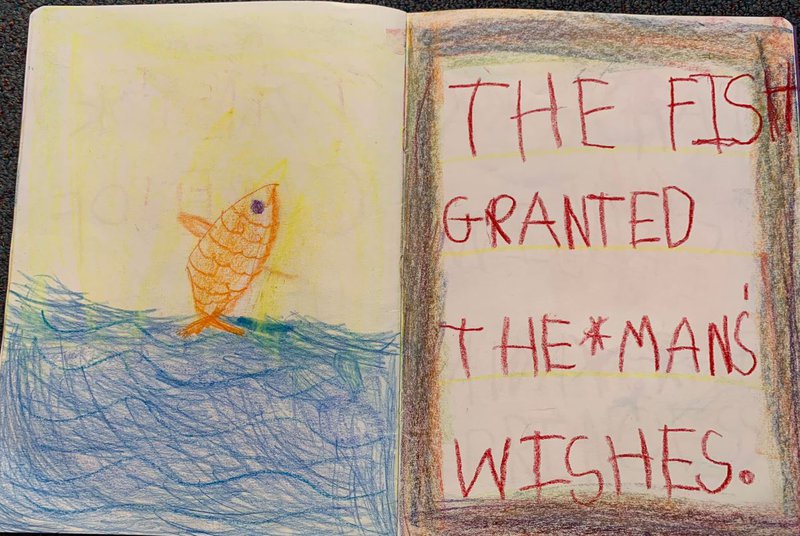 THE FISH
GRANTED
THE*MAN'S
WISHES.